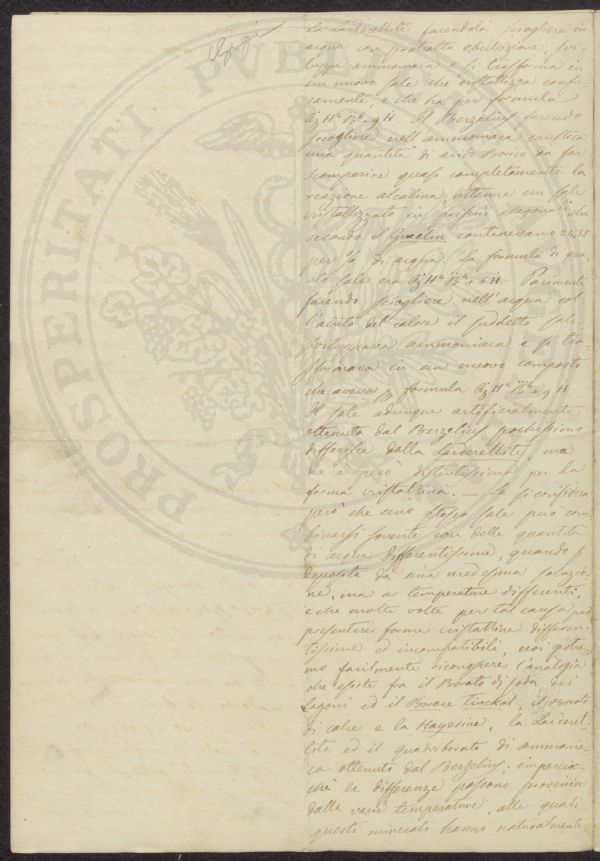 PROSPERITATI PVBL
La Larderellite facendola sciogliere in
acqua con protratta ebollizione, svi-
luppa ammoniaca e si trasforma in
un nuovo sale che cristallizza confu-
samente, e che ha per formula
Il Berzelius facendo
sciogliere nell'ammoniaca caustica
una quantità di acido Borico da far
scomparire quasi completamente la
reazione alcalina, ottenne un sale
cristallizzato in prismi esagonali che
secondo il Gmelin contenevano
per % di acqua. La formula di que-
sto sale era Parimente
facendo sciogliere nell'acqua col
l'aiuto del calore il suddetto sale
sviluppava ammoniaca e si tra-
sformava in un nuovo composto
che aveva formula
Il sale adunque artificialmente
ottenuto dal Berzelius pochissimo
differisce dalla Larderellite, ma
ne è però distintissimo per la
forma cristallina. — Se si considera
però che uno stesso sale può com
binarsi sovente con delle quantità
di acqua differentissime, quando si
deposita da una medesima soluzio-
ne, ma a temperature differenti,
e che molte volte per tal causa può
presentare forme cristalline differen-
tissime ed incompatibili, noi potre-
mo facilmente riconoscere l'analogia
che esiste fra il Borato di soda dei
lagoni ed il Borace Tinckal, il Borato
di calce e la Hayesina, la Larderel-
lite ed il quadriborato di ammonia-
ca ottenuto dal Berzelius; imperocc-
chè le differenze possono provenire
dalle varie temperature, alle quali
questi minerali hanno naturalmente